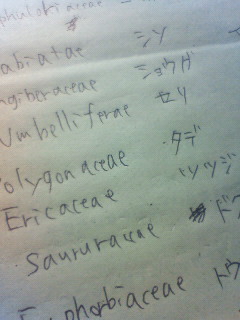 abiatae シソ
ngiberaceae ショウガ
Umbelliferae セリ
olygonaceae タデ
Ericaceae ツツジ
Saururaceae ド
Euphorbiaceae トウ